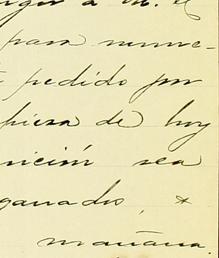 a M. el
para nume-
pedido por
pieza de hoy
nición sea
ganados, *
mañana.